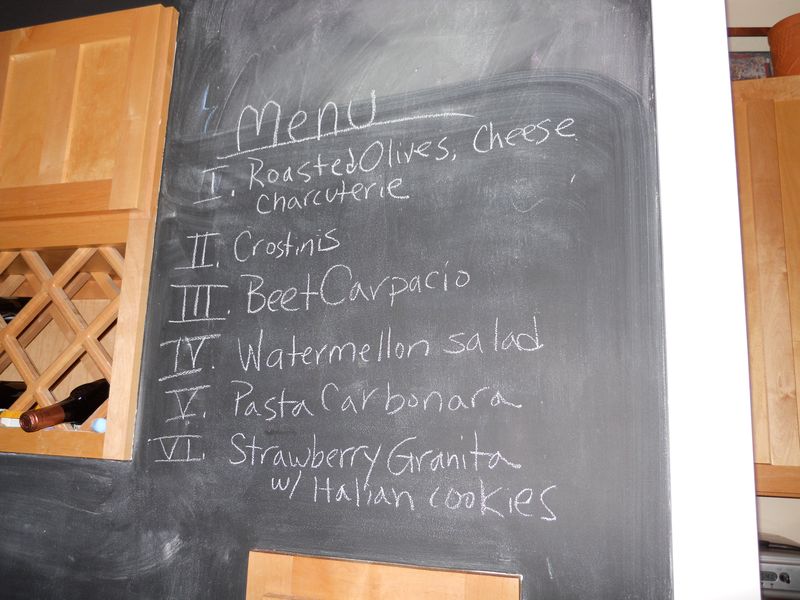 Menu
I. Roasted Olives, Cheese
Charcuterie
II. Crostinis
III. Beet Carpacio
IV. Watermellon salad
V. Pasta Carbonara
VI. Strawberry Granita
w/ Italian cookies